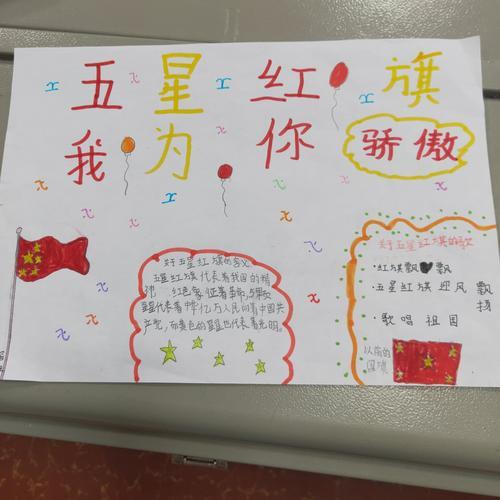 五星红旗
我为你骄傲
关于五星红旗的含义
五星红旗代表着我国的精
神，红色象征着革命，
星星代表着中华亿万人民向着中国共
产党，而黄色的星星也代表着光明。
关于五星红旗的歌
·红旗飘飘
·五星红旗迎风飘
扬
·歌唱祖国
以前的
国旗